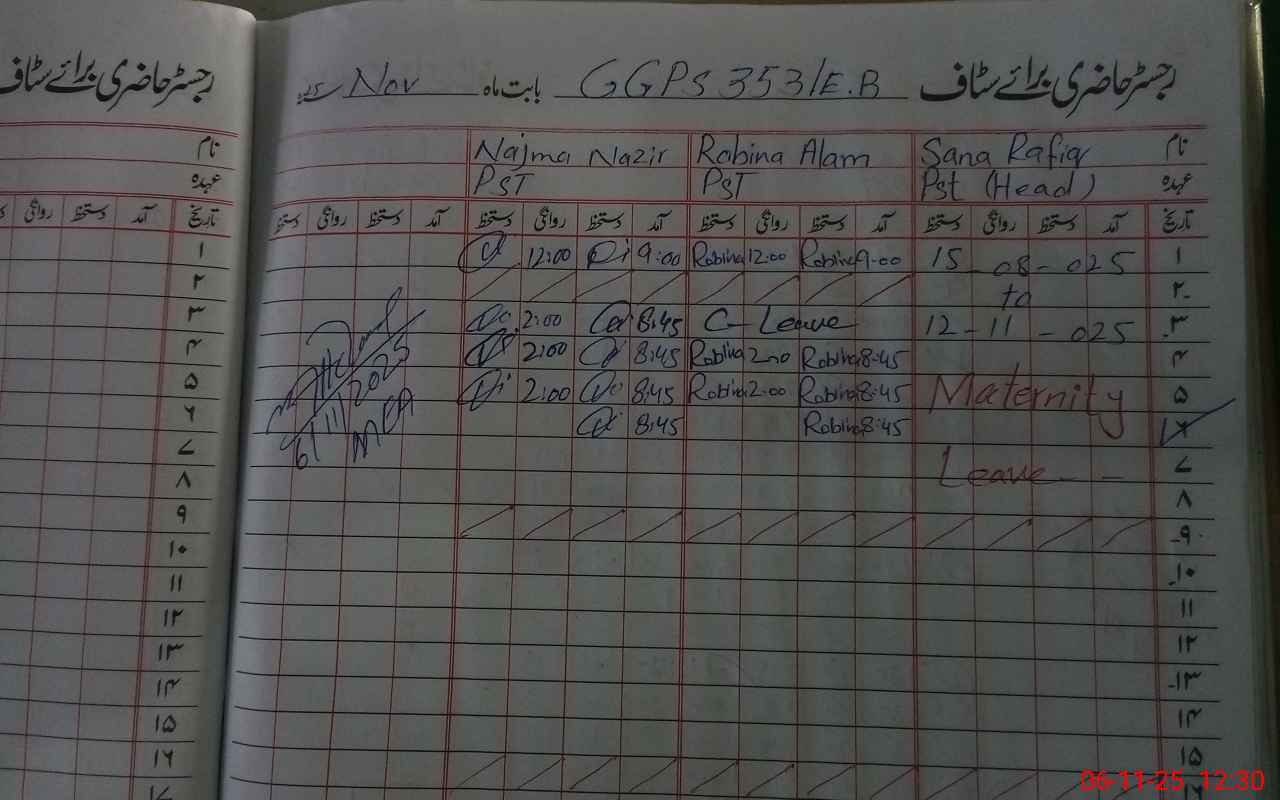 رجسٹر حاضری برائے سٹاف
رجسٹر حاضری برائے سٹاف GGPS 353/E.B بابت ماہ Nov
نام Sana Rafiq Robina Alam Najma Nazir
عہدہ Pst (Head) PST PST
تاریخ آمد دستخط روانگی دستخط آمد دستخط روانگی دستخط آمد دستخط روانگی دستخط آمد دستخط روانگی دستخط
۱ 15-08-025 9:00 Robina 12:00 Robina 9:00 12:00
۲ to
۳ 12-11-025 C-Leave 8:45 2:00
۴ 8:45 Robina 2:00 Robina 8:45 2:00
۵ Maternity 8:45 Robina 2:00 Robina 8:45 2:00
۶ 8:45 Robina 8:45
۷ Leave
۸
۹
۱۰
۱۱
۱۲
۱۳
۱۴
۱۵
6/11/2025
MEA
نام
عہدہ
تاریخ آمد دستخط روانگی
۱
۲
۳
۴
۵
۶
۷
۸
۹
۱۰
۱۱
۱۲
۱۳
۱۴
۱۵
۱۶
۱۷
06-11-25 12:30